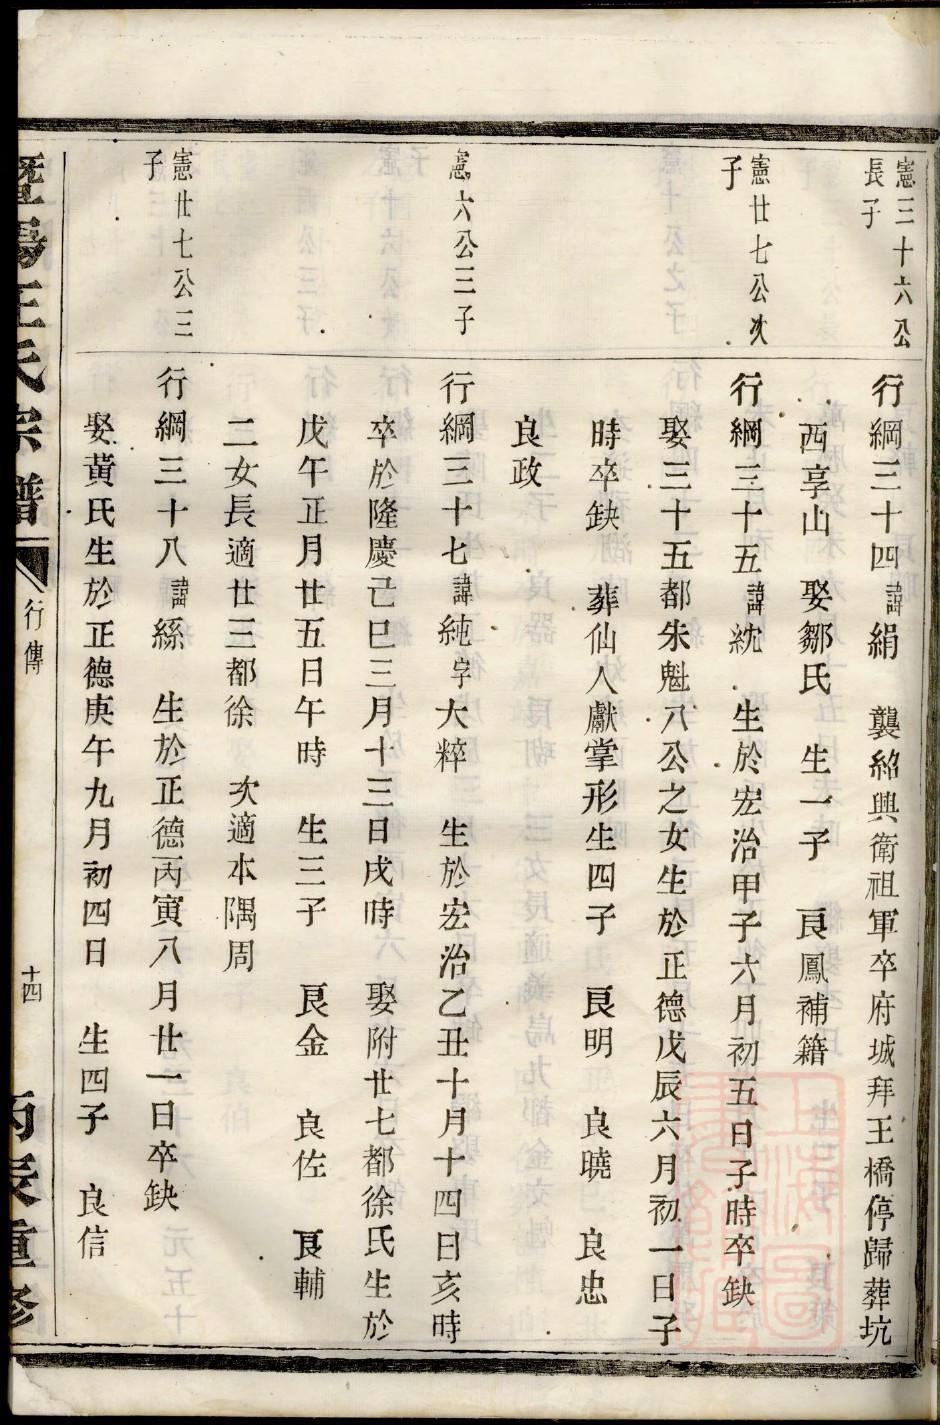 憲三十六公
長子
行綱三十四諱絹　襲紹興衛祖軍卒府城拜王橋停歸葬坑
西享山　娶鄒氏　生一子　良鳳補籍
憲廿七公次
子
行綱三十五諱統　生於宏治甲子六月初五日子時卒缺
娶三十五都朱魁八公之女生於正德戊辰六月初一日子
時卒缺　葬仙人獻掌形生四子　良明　良曉　良忠
良政
憲六公三子
行綱三十七諱純字大粹　生於宏治乙丑十月十四日亥時
卒於隆慶己巳三月十三日戌時　娶附廿七都徐氏生於
戊午正月廿五日午時　生三子　良金　良佐　良輔
二女長適廿三都徐　次適本隅周
憲廿七公三
子
行綱三十八諱縣　生於正德丙寅八月廿一日卒缺
娶黃氏生於正德庚午九月初四日　生四子　良信
暨陽王氏宗譜
行傳
十四
丙辰重修